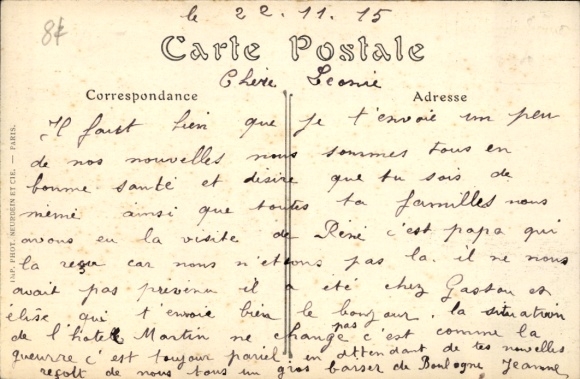 8f
le 22.11.15
Carte Postale
Chère Leonie
Correspondance
Adresse
Il faut bien que je t'envoie un peu
de nos nouvelles nous sommes tous en
bonne santé et désire que tu sois de
même ainsi que toutes ta familles nous
avons eu la visite de René c'est papa qui
la reçu car nous n'etions pas la. il ne nous
avait pas prevenu il a été chez Gaston et
élise qui t'envoie bien le bonjour. la situation
de l'hotel Martin ne change pas c'est comme la
guerre c'est toujour pariel en attendant de tes nouvelles
reçoit de nous tous un gros baiser de Boulogne Jeanne
IMP. PHOT. NEURDEIN ET CIE. — PARIS.